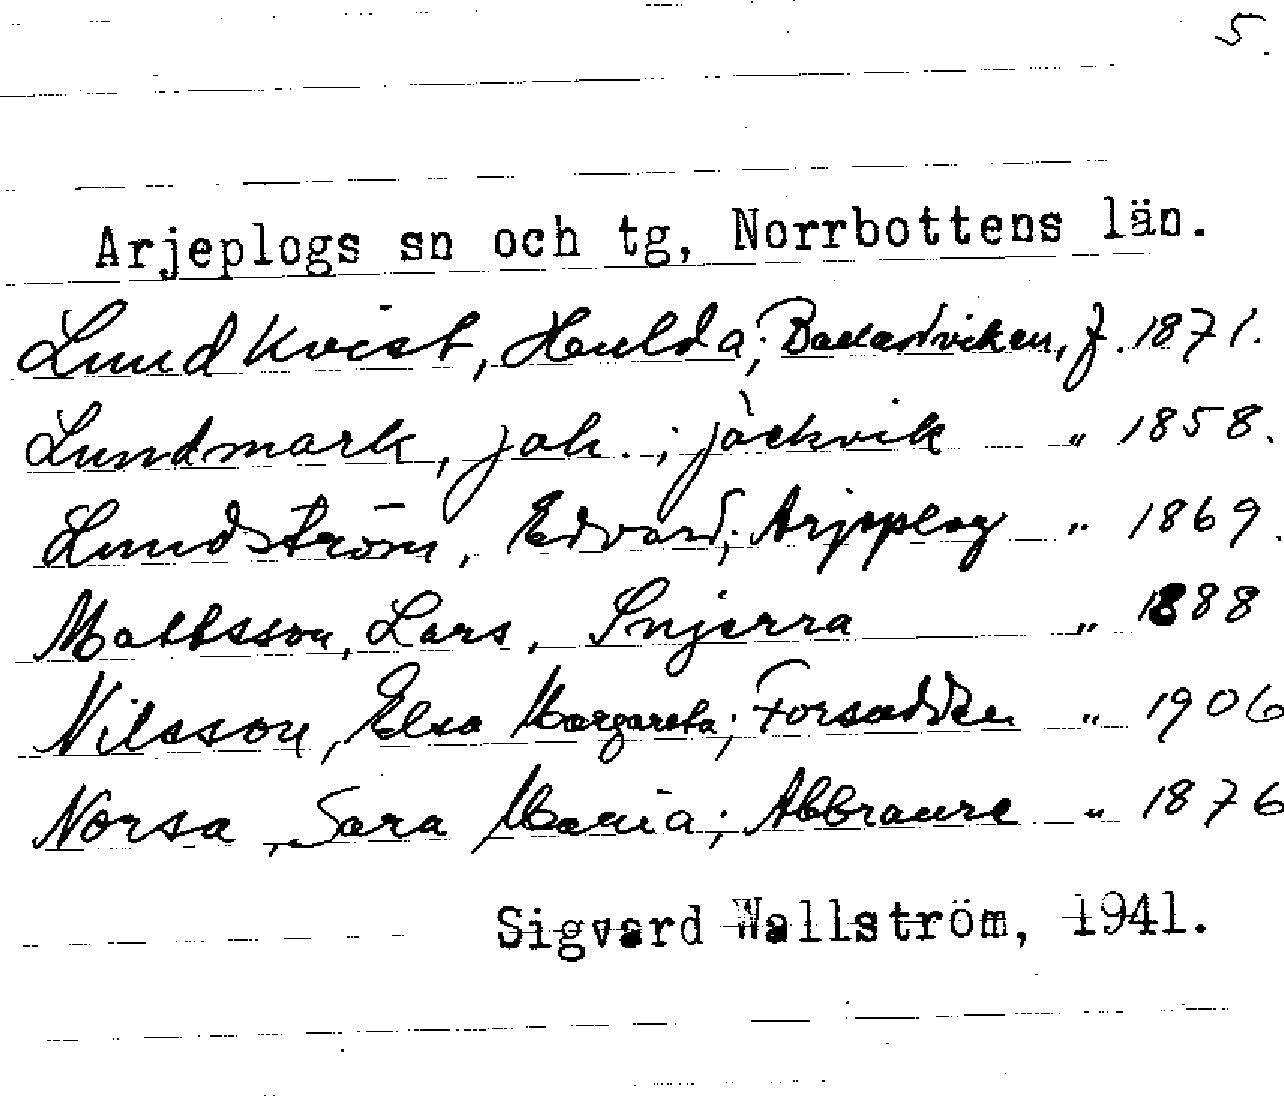 5.
Arjeplogs sn och tg, Norrbottens län.
Lundkvist, Hulda; Backastviken, f. 1871.
Lundmark, Joh.; Jäckvik " 1858.
Lundström, Edvard; Arjeplog " 1869.
Mattsson, Lars, Snjerra " 1888
Nilsson, Elsa Margareta; Forsudden " 1906
Norsa, Sara Maria; Abbraure " 1876
Sigvard Wallström, 1941.